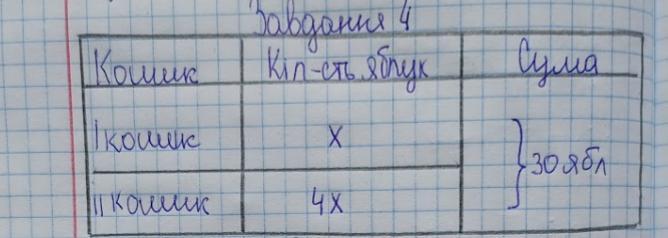 Завдання 4
Кошик Кіл-сть яблук Сума
I кошик x
} 30 ябл
II кошик 4x